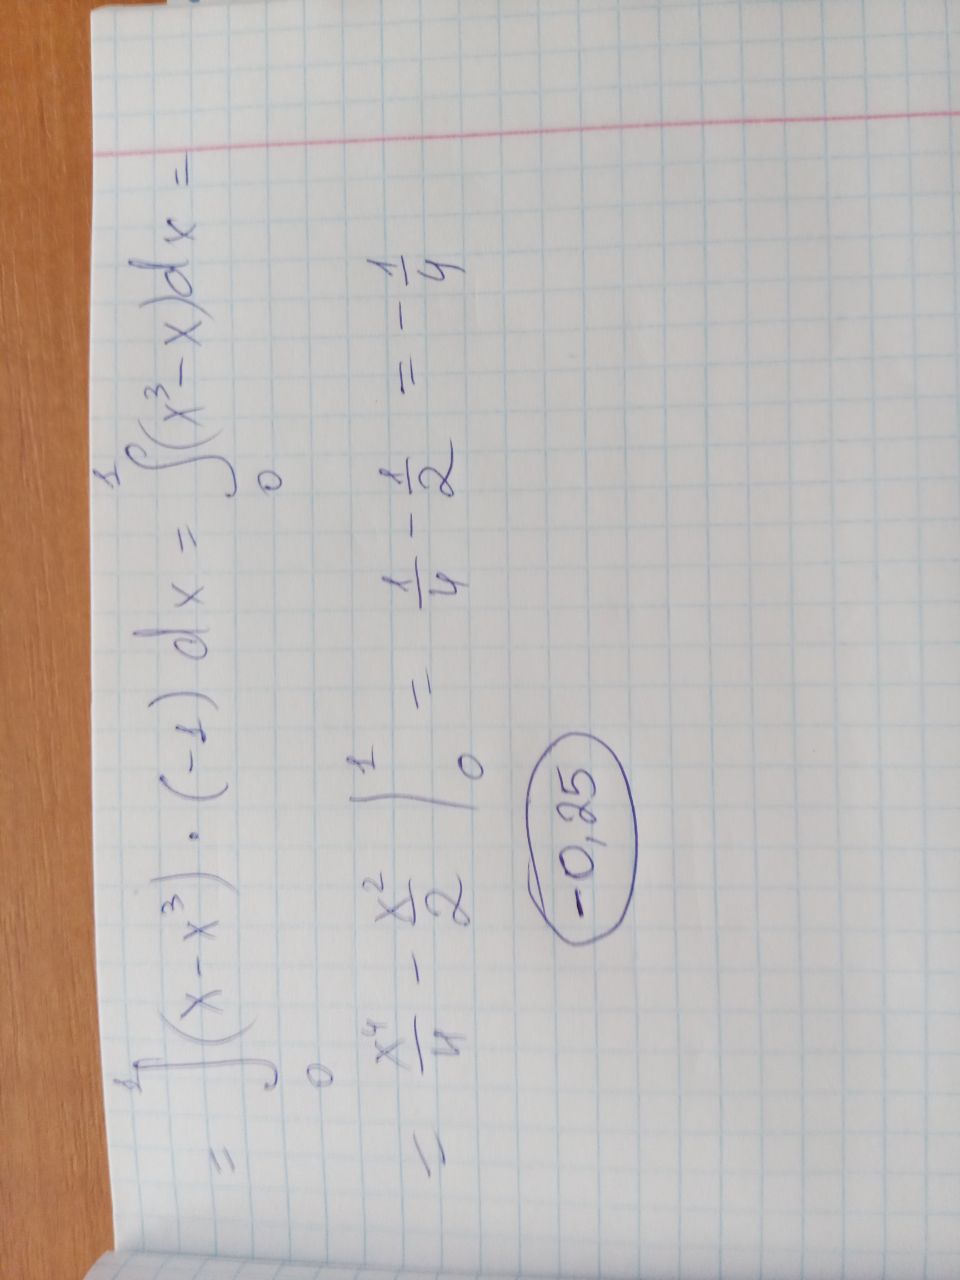 = ∫₀¹ (x - x³) · (-1) dx = ∫₀¹ (x³ - x) dx =
= x⁴/4 - x²/2 |₀¹ = 1/4 - 1/2 = - 1/4
-0,25